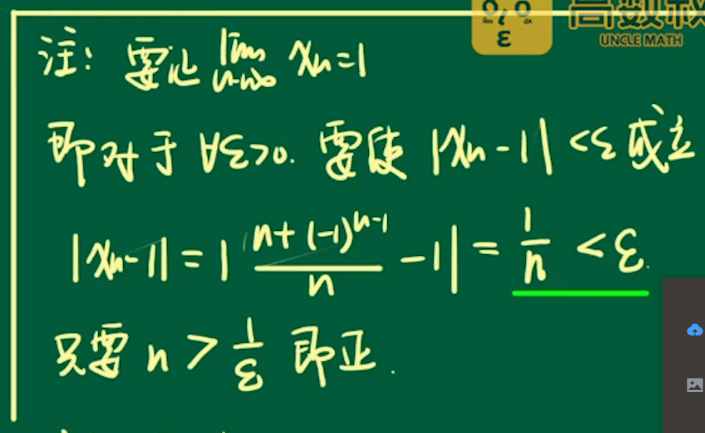 高数叔
UNCLE MATH
注: 要证 lim n→∞ xn=1
即对于 ∀ε>0. 要使 |xn-1|<ε 成立
|xn-1| = | (n+(-1)^(n-1))/n -1| = 1/n <ε.
只要 n > 1/ε 即正.